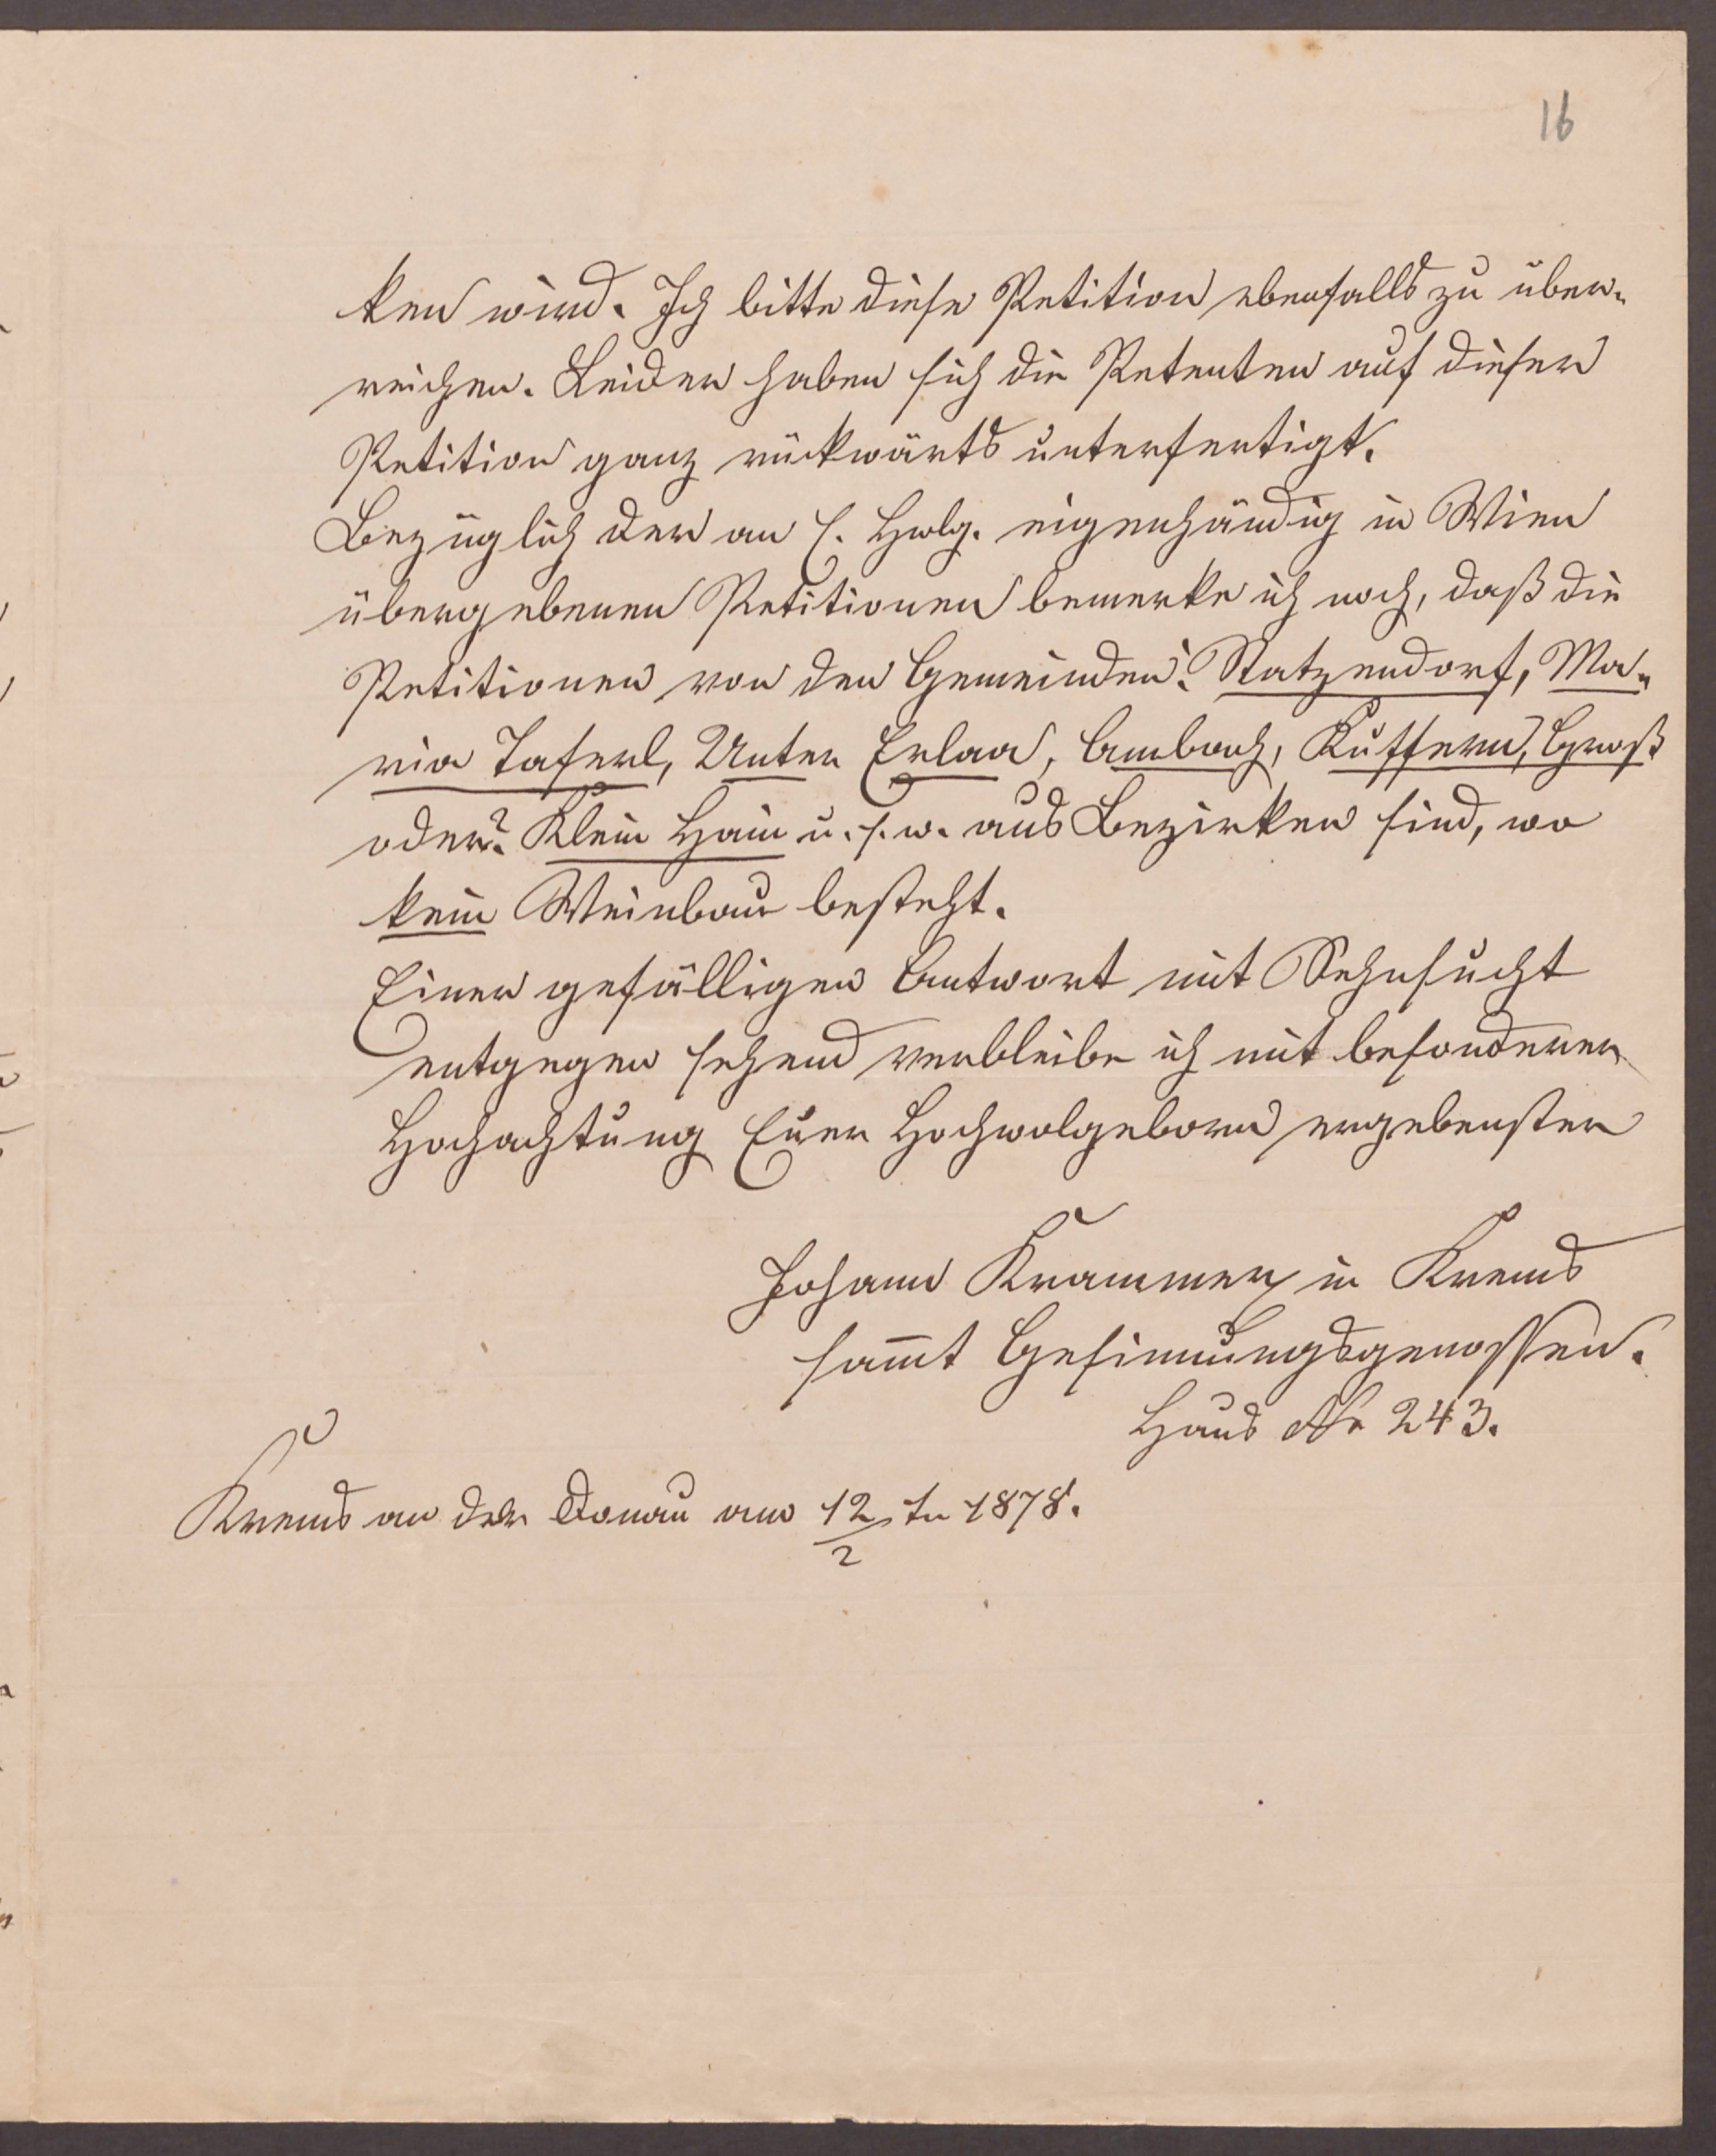 16
ken wird. Ich bitte diese Petition ebenfalls zu über-
reichen. Leider haben sich die Petenten auf dieser
Petition ganz rückwärts unterfertigt.
Bezüglich der an E. Hwlg. eigenhändig in Wien
übergebenen Petitionen bemerke ich noch, daß die
Petitionen von den Gemeinden: Statzendorf, Ma-
ria Taferl, Unter Erlaa, Ambach, Kuffern, Groß
oder? Klein Hain u. s. w. aus Bezirken sind, wo
kein Weinbau besteht.
Einer gefälligen Antwort mit Sehnsucht
entgegen sehend verbleibe ich mit besonderer
Hochachtung Euer Hochwolgeborn ergebenster
Johann Krammer in Krems
sam̅t Gesinnungsgenossen.
Haus Nr 243.
Krems an der Donau am 12/2 tn 1878.